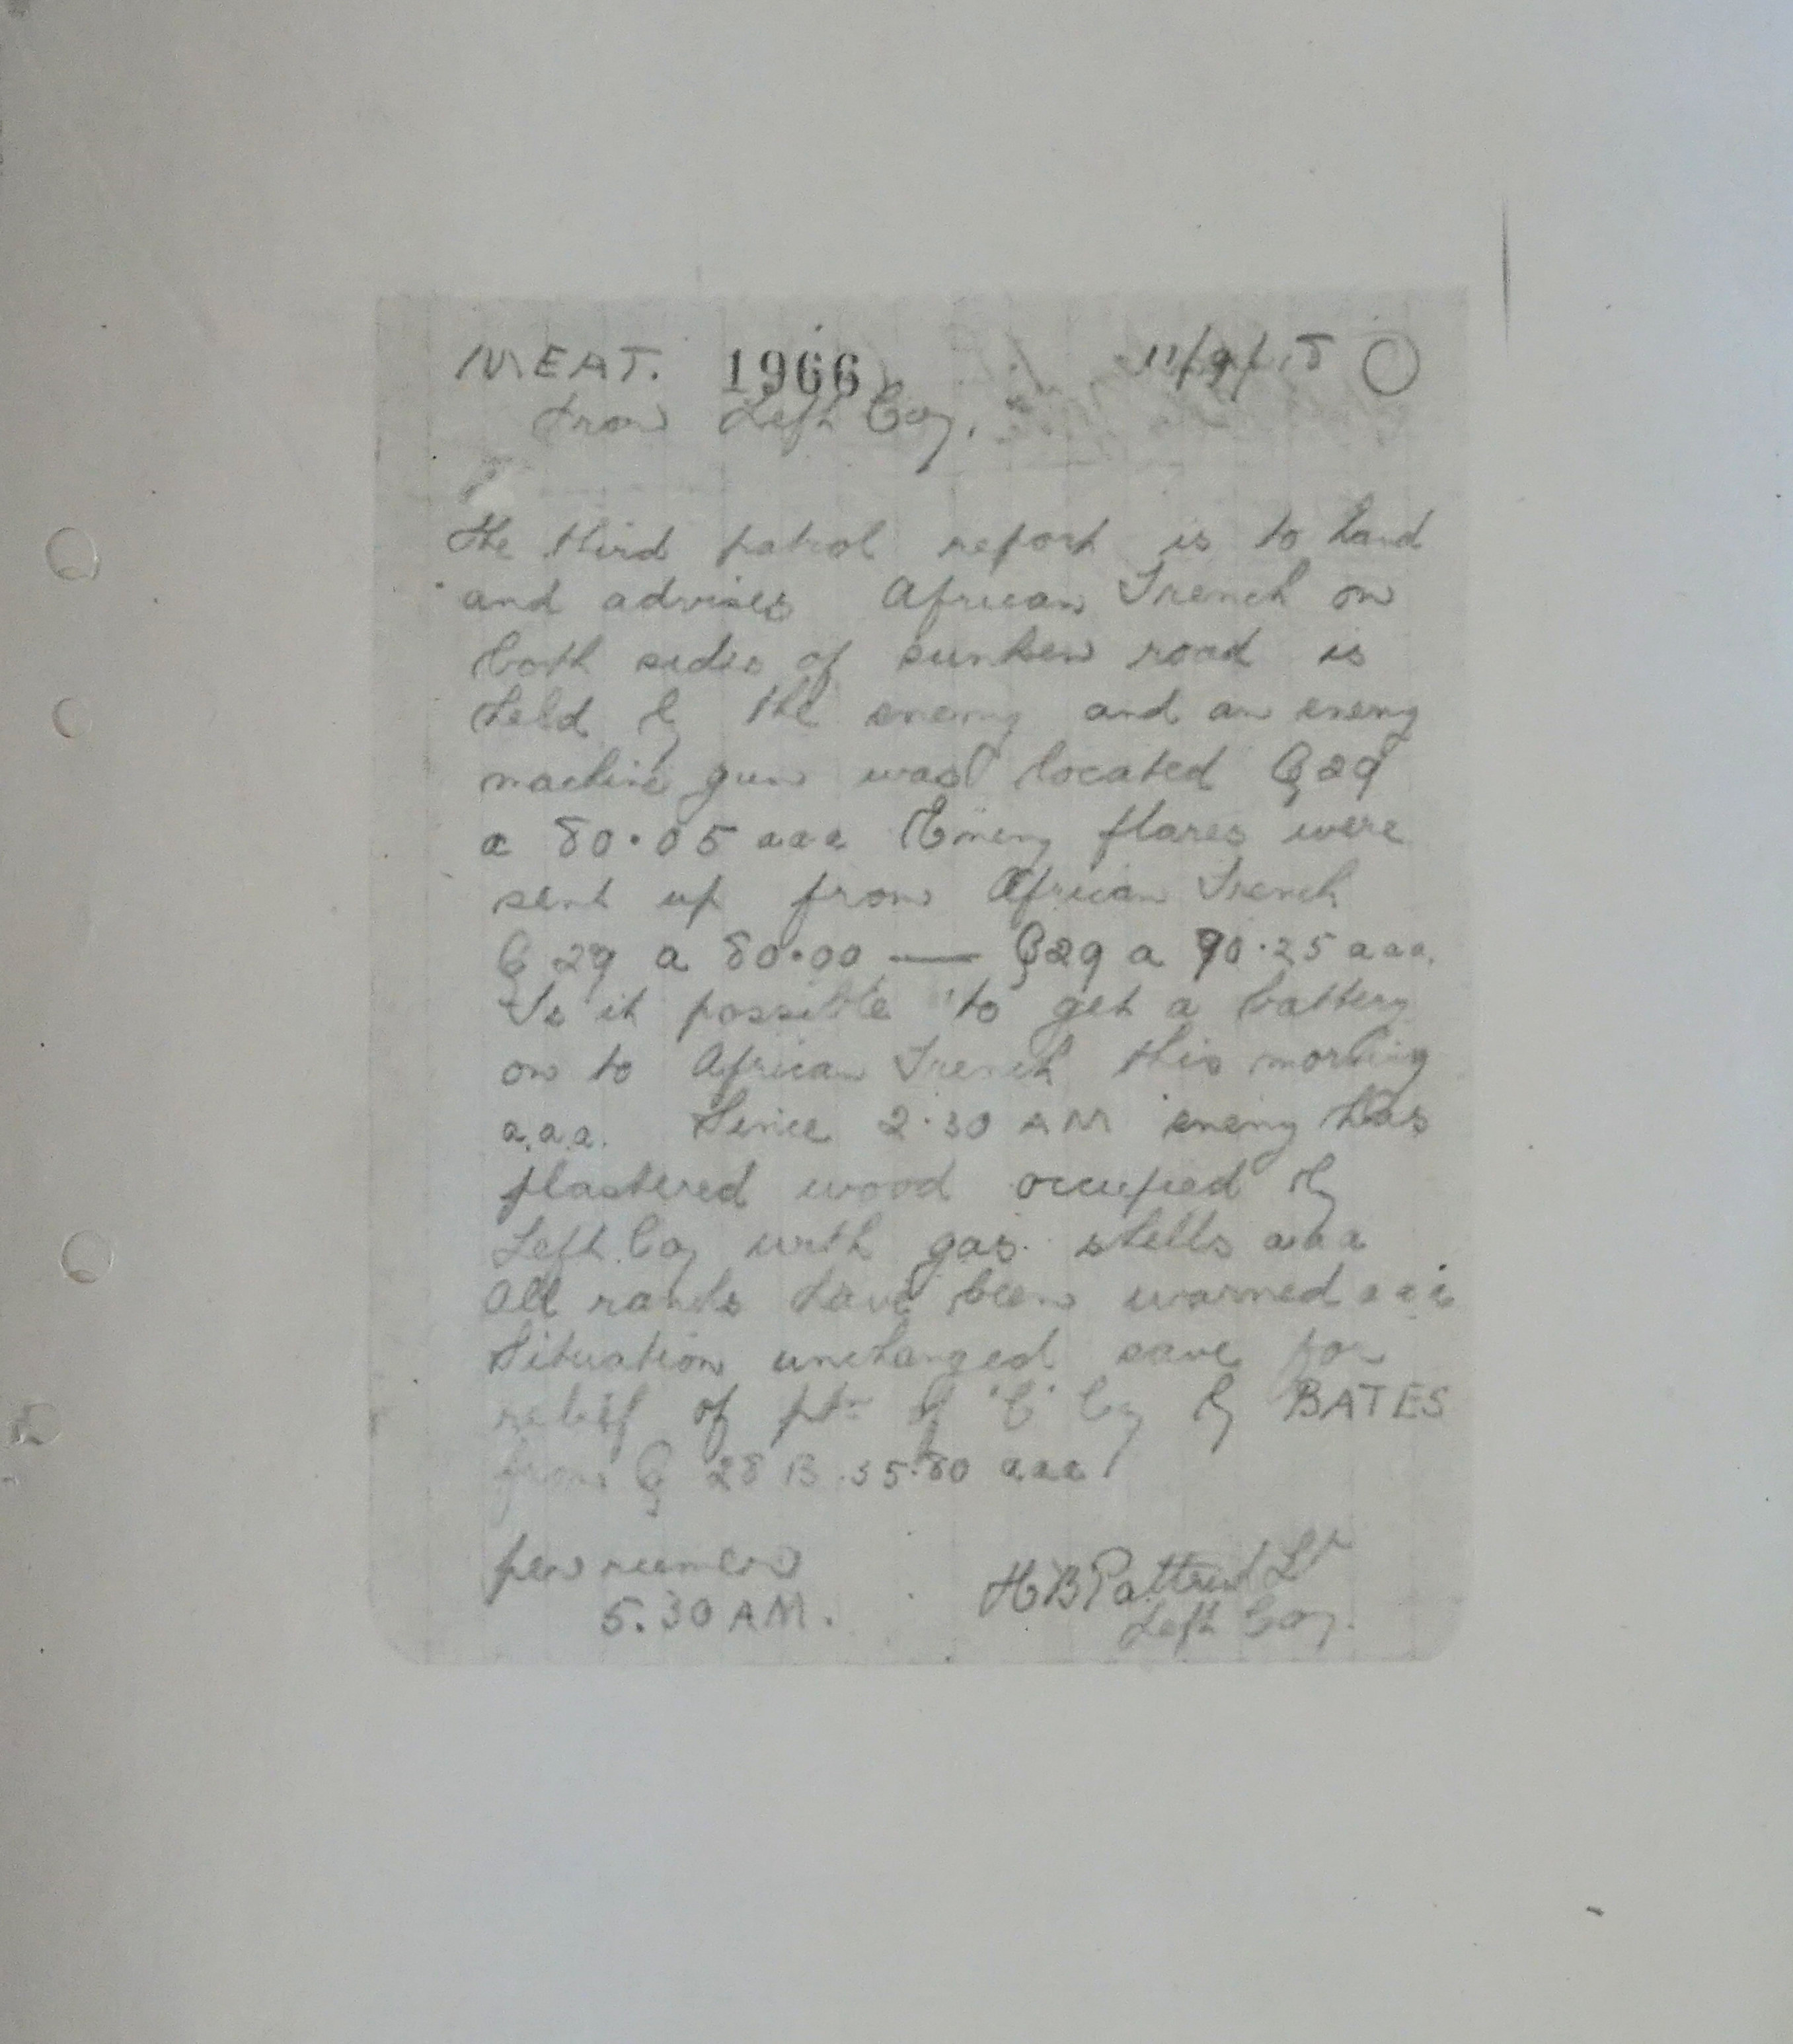 MEAT. 1966 11/9/18
From Left Coy.
The third patrol report is to hand
and advises African Trench on
both sides of sunken road is
held by the enemy and an enemy
machine gun was located G29
a 80.05 aaa Enemy flares were
sent up from African Trench
G 29 a 80.00 — G29 a 90.25 aaa.
Is it possible to get a battery
on to African Trench this morning
a.a.a. Since 2.30 AM enemy has
plastered wood occupied by
Left Coy with gas shells aaa
All ranks have been warned aaa
Situation unchanged save for
relief of pln of "C" Coy by BATES
from G 28 B.35.80 aaa
per runner
5.30 AM. H B Lt
Left Coy.